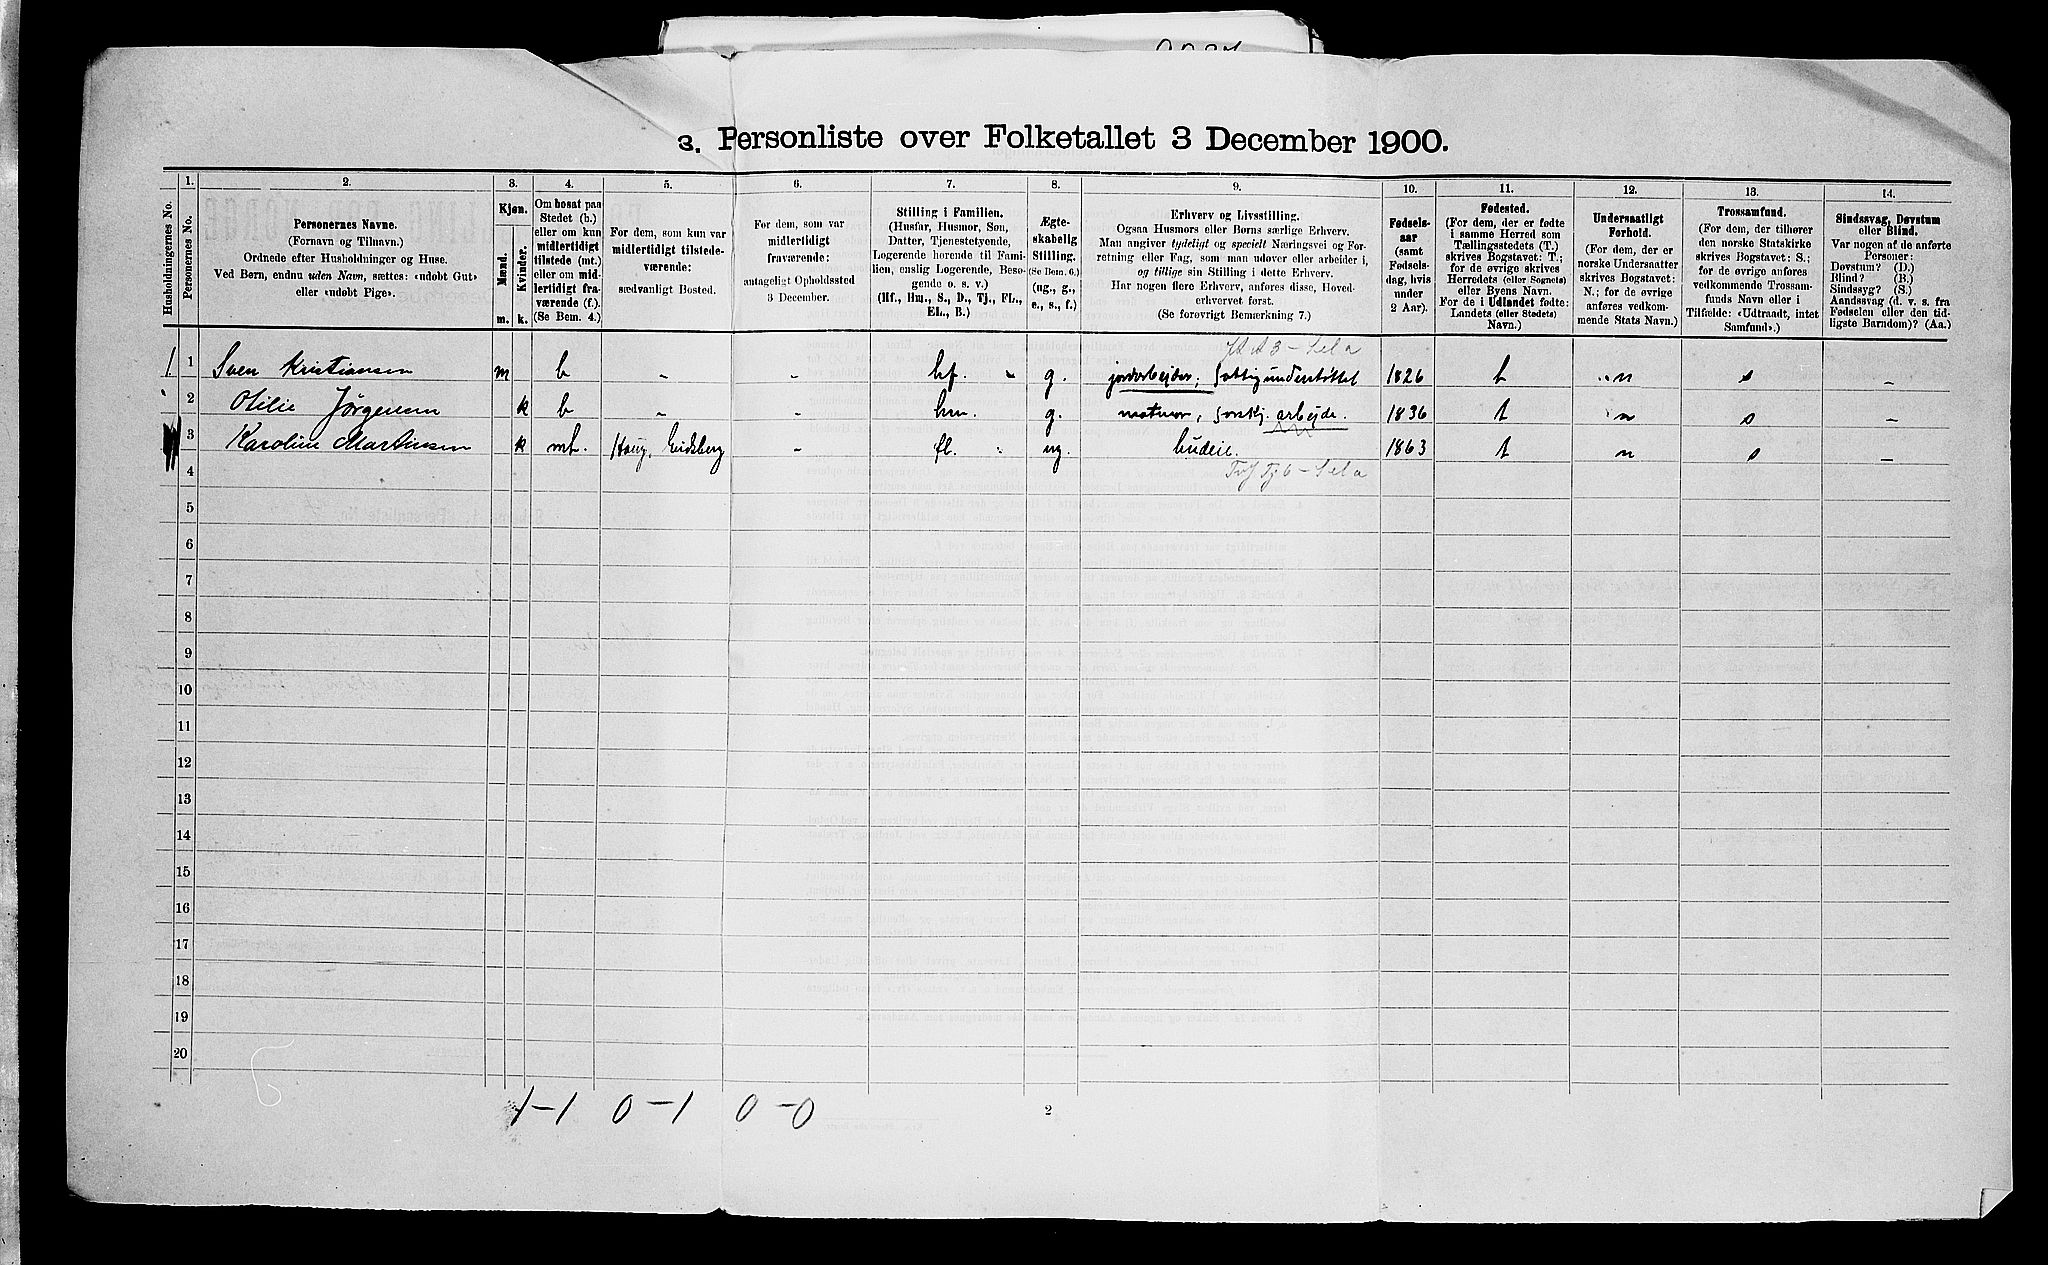 3. Personliste over Folketallet 3 December 1900.
1. 2. 3. 4. 5. 6. 7. 8. 9. 10. 11. 12. 13. 14.
Husholdningernes No.
Personernes No.
Personernes Navne.
(Fornavn og Tilnavn.)
Ordnede efter Husholdninger og Huse.
Ved Børn, endnu uden Navn, sættes: «udøbt Gut»
eller «udøbt Pige».
Kjøn.
Mænd.
Kvinder.
m. k.
Om bosat paa
Stedet (b.)
eller om kun
midlertidigt
tilstede (mt.)
eller om mid-
lertidigt fra-
værende (f.)
(Se Bem. 4.)
For dem, som kun var
midlertidigt tilstede-
værende:
sædvanligt Bosted.
For dem, som var
midlertidigt
fraværende:
antageligt Opholdssted
3 December.
Stilling i Familien.
(Husfar, Husmor, Søn,
Datter, Tjenestetyende,
Logerende hørende til Fami-
lien, enslig Logerende, Besø-
gende o. s. v.)
(Hf., Hm., S., D., Tj., FL.,
EL., B.)
Ægte-
skabelig
Stilling.
(Se Bem. 6.)
(ug., g.,
e., s., f.)
Erhverv og Livsstilling.
Ogsaa Husmors eller Børns særlige Erhverv.
Man angiver tydeligt og specielt Næringsvei og For-
retning eller Fag, som man udøver eller arbeider i,
og tillige sin Stilling i dette Erhverv.
Har nogen flere Erhverv, anføres disse, Hoved-
erhvervet først.
(Se forøvrigt Bemærkning 7.)
Fødsels-
aar
(samt
Fødsels-
dag, hvis
under
2 Aar).
Fødested.
(For dem, der er fødte
i samme Herred som
Tællingsstedets (T.)
skrives Bogstavet: T.;
for de øvrige skrives
Herredets (eller Sognets)
eller Byens Navn.
For de i Udlandet fødte:
Landets (eller Stedets)
Navn.)
Undersaatligt
Forhold.
(For dem, der er
norske Undersaatter
skrives Bogstavet:
N.; for de øvrige
anføres vedkom-
mende Stats Navn.)
Trossamfund.
(For dem, der tilhører
den norske Statskirke
skrives Bogstavet: S.;
for de øvrige anføres
vedkommende Trossam-
funds Navn eller i
Tilfælde: «Udtraadt, intet
Samfund».)
Sindssvag, Døvstum
eller Blind.
Var nogen af de anførte
Personer:
Døvstum? (D.)
Blind? (B.)
Sindssyg? (S.)
Aandssvag (d. v. s. fra
Fødselen eller den tid-
ligste Barndom)? (Aa.)
1. 1 Sven Kristiansen m b - - hf. g. jordarbejder, fattigunderstøttet 1826 t n s -
2 Otilie Jørgensen k b - - hm. g. matmor, forskj. arbejde. 1836 t n s -
3 Karoline Martinsen k mt. Haug, Eidsberg - fl. ug. budeie. 1863 t n s -
4
5
6
7
8
9
10
11
12
13
14
15
16
17
18
19
20
1-1 0-1 0-0
2